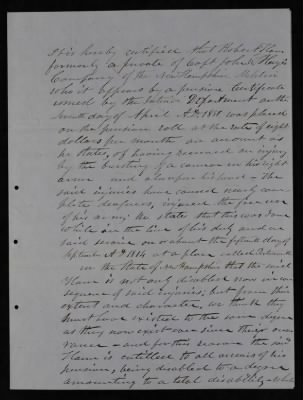 It is hereby certified that Robert Ham
formerly a private of Capt John
Company of the New Hampshire Militia
who it appears by a pension Certificate
issued by the Interior Department on the
day of April A.D. was placed
on the pension roll at the rate of eight
dollars per month on account as
he states, of having received an injury
by the bursting of a cannon in his right
arm and also upper The
said injuries have caused nearly com
plete deafness, injured the free use
of his arm; He states that this was done
while in the line of his duty and in
said service on or about the day of
September A.D. 1814 at a place called
in the State of New Hampshire that the said
Ham is not only disabled now in con
sequence of said injuries; but from their
extent and character, we think they
must have existed to the same degree
as they now exist ever since their occur
rance and for this reason the said
Ham is entitled to all arrears of his
pension, being disabled to a degree
amounting to a total disability